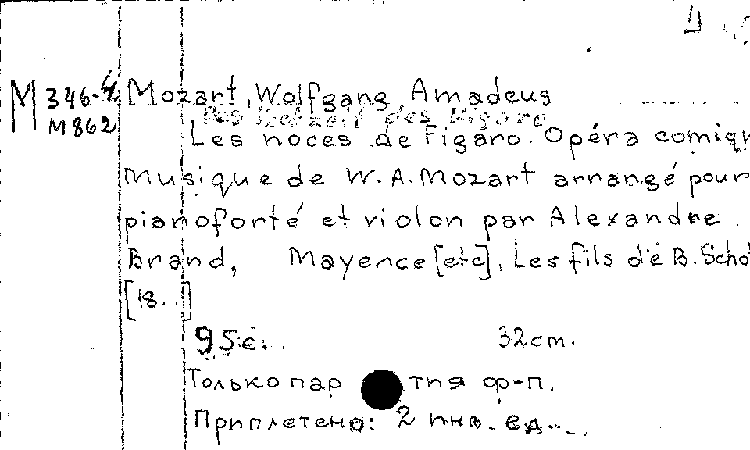 M 346-4 Mozart, Wolfgang Amadeus
M862
Les noces de Figaro. Opéra comiq
musique de W. A. Mozart arrangé pour
pianoforté et violon par Alexandre
Brand, Mayence [etc], Les fils de B. Scho
[18..]
95 с. 32 cm.
Только пар тия ф-п.
Приплетено: 2 инв. ед.